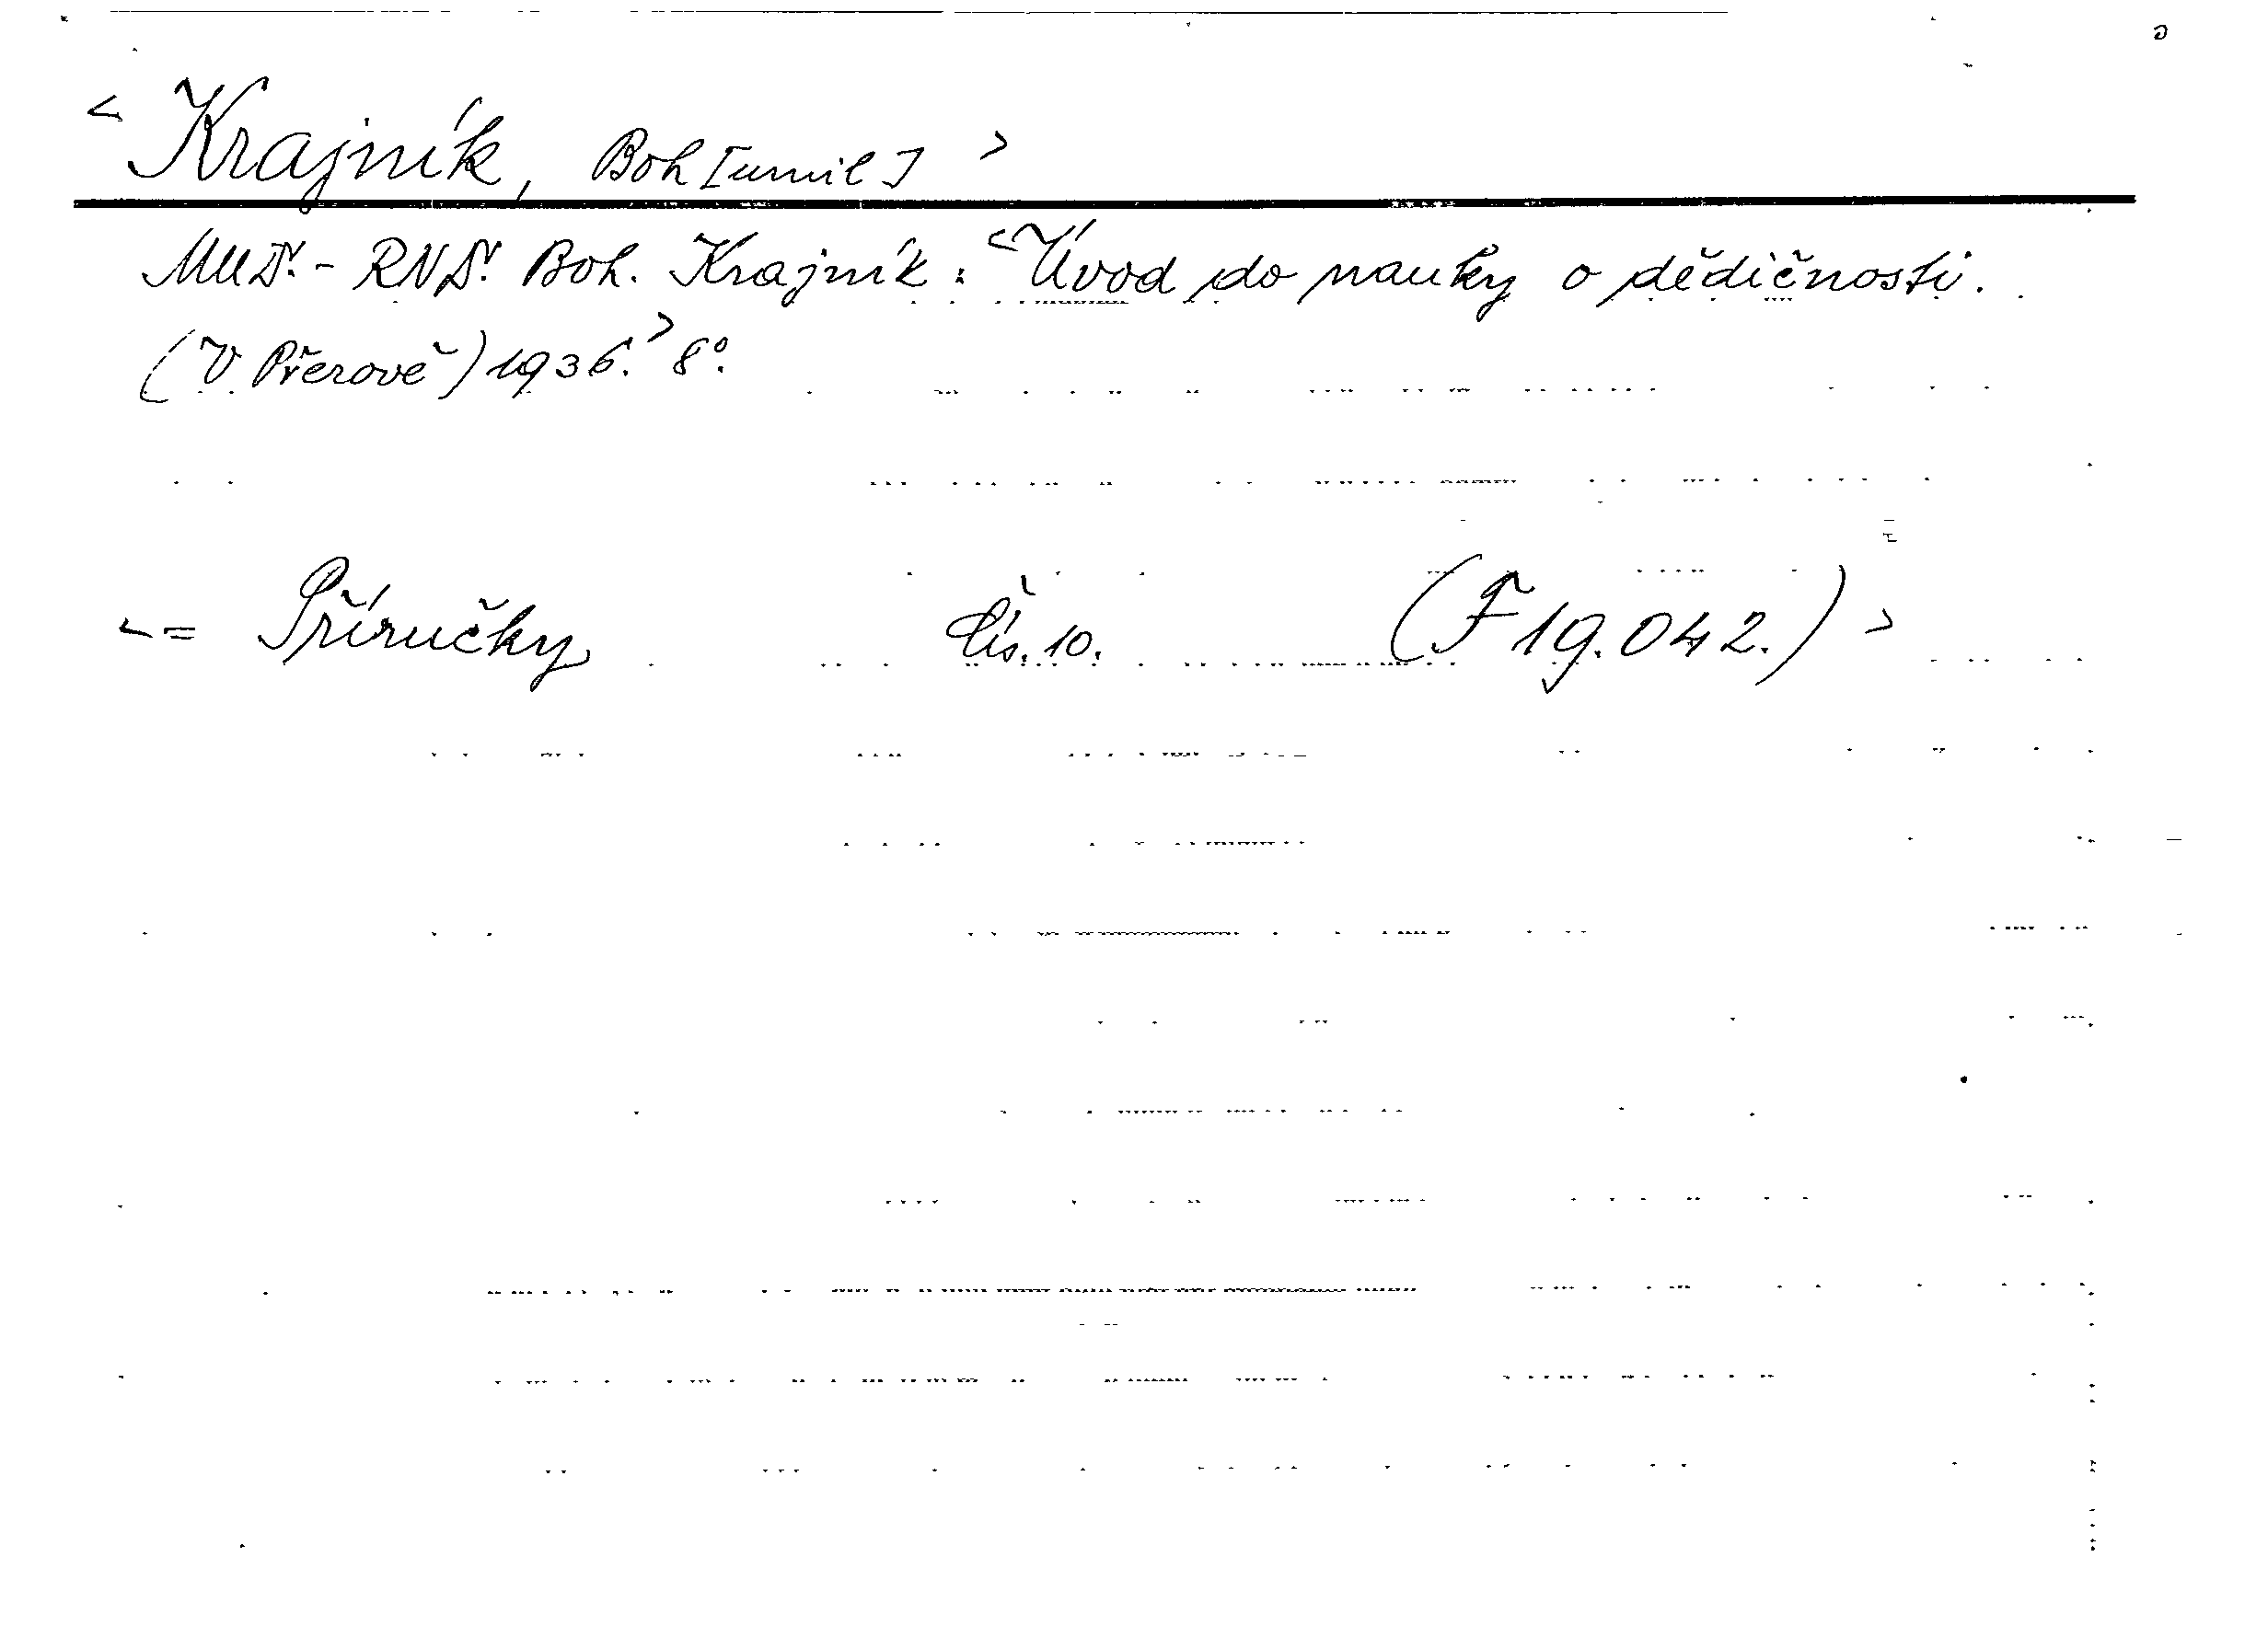 < Krajník, Boh[umil] >
MUDr. - RNDr. Boh. Krajník: <Úvod do nauky o dědičnosti.
(V Přerově) 1936.> 8°.
< = Příručky Čís. 10. (F 19.042.) >